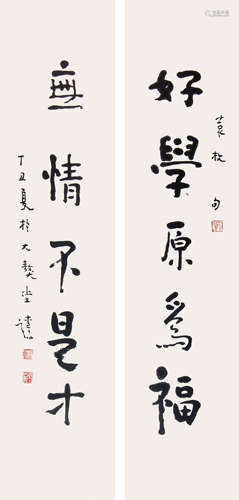 好學原為福
袁枚句
無情不是才
丁丑夏於大